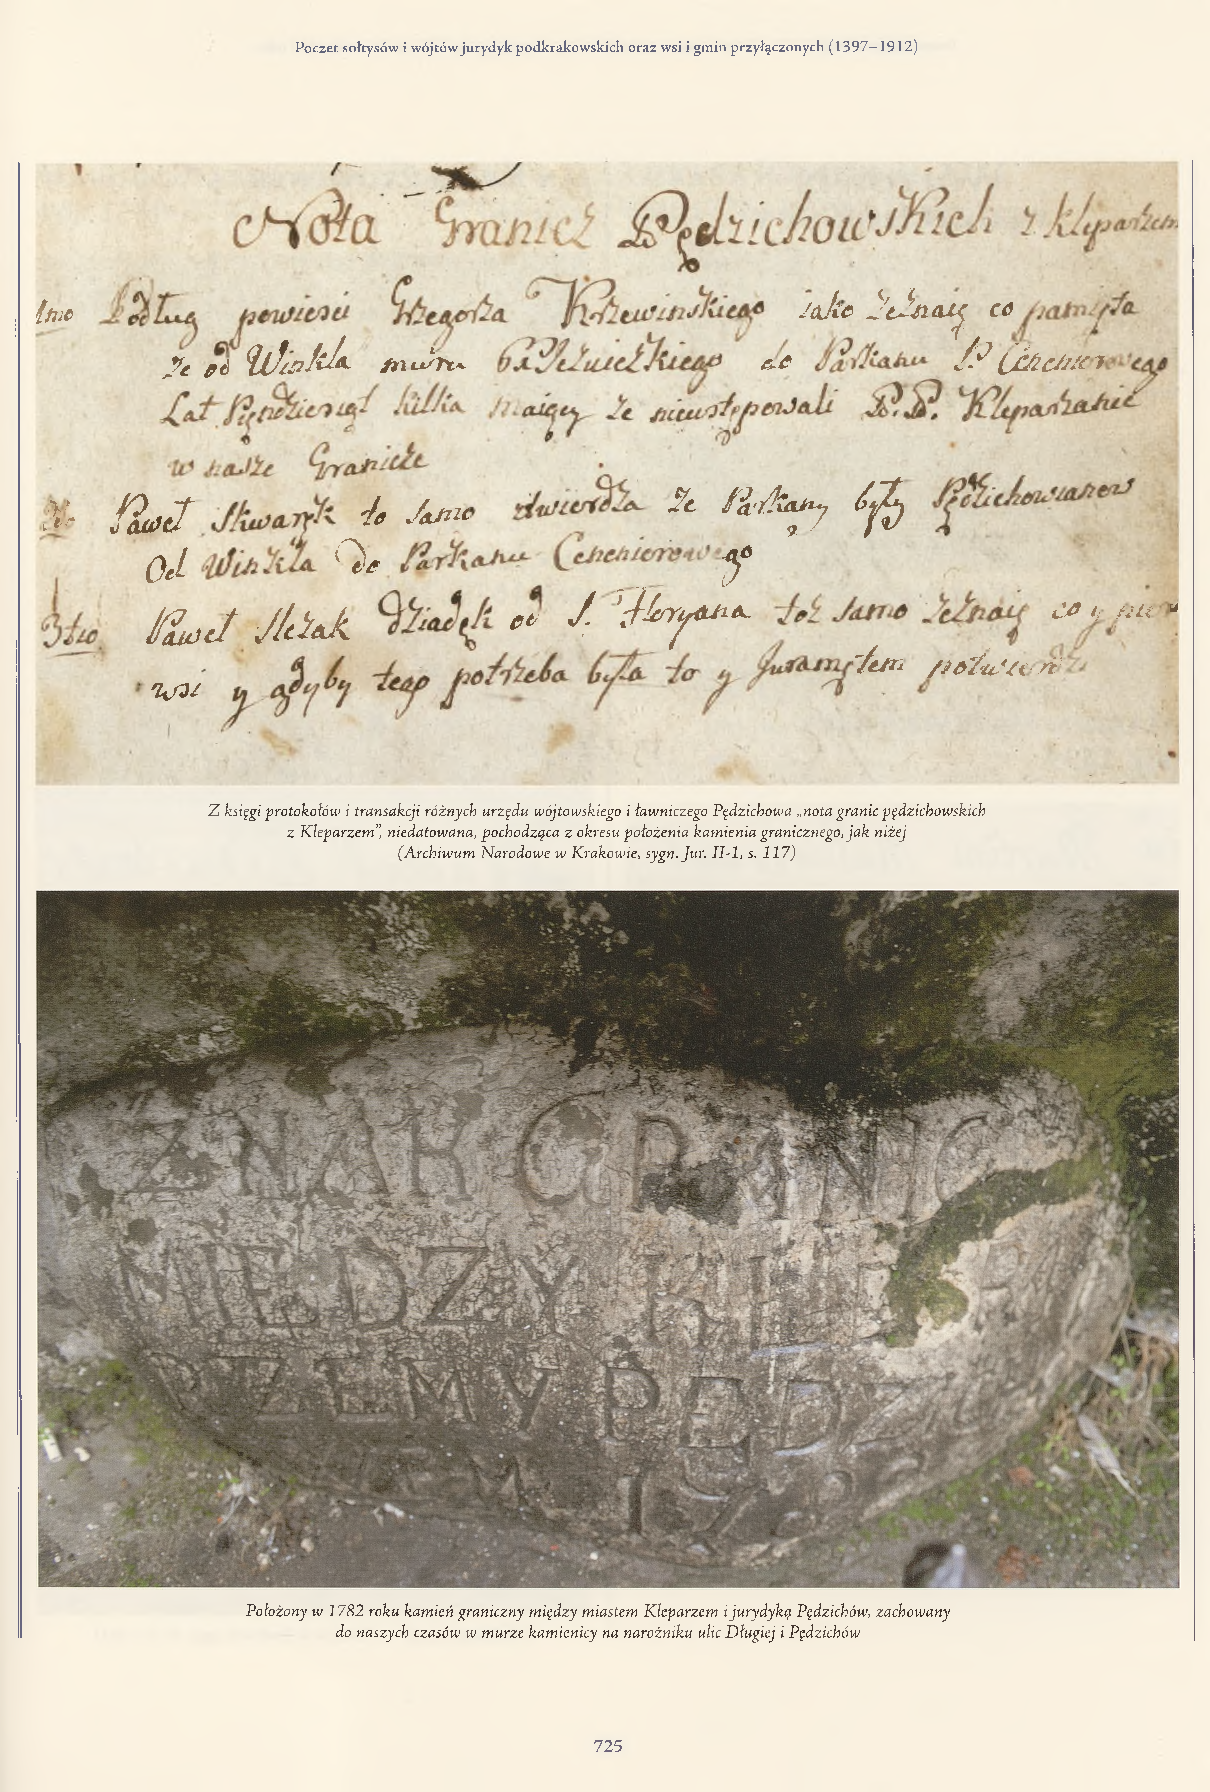 Poczet sołtysów i wójtów jurydyk podkrakowskich oraz wsi i gmin przyłączonych (1397–1912)
Nota Granicz Pędzichowskich z kleparzem
1mo Podług powiesci Grzegorza Krzewinskiego iako zeznaię co pamięta
ze od Winkla muru do Parkanu P. Cencniorowego
Lat kilka maiący ze nieustępowali P.P. Kleparzanie
w nasze Granicze
2do Paweł Skwaręk to samo ztwierdza ze Parkany były Pędzichowianow
Od Winkla do Parkanu Cencniorowego
3tio Paweł Slezak dziadęk od S. Floryana toz samo zeznaię co y pier
wsi y gdyby tego potrzeba była to y Juramętem potwierdzi
Z księgi protokołów i transakcji różnych urzędu wójtowskiego i ławniczego Pędzichowa „nota granic pędzichowskich
z Kleparzem”, niedatowana, pochodząca z okresu położenia kamienia granicznego, jak niżej
(Archiwum Narodowe w Krakowie, sygn. Jur. II-1, s. 117)
ZNAK GRANIC
MIEDZY KLEP
RZEMY PĘDZI
M 178
Położony w 1782 roku kamień graniczny między miastem Kleparzem i jurydyką Pędzichów, zachowany
do naszych czasów w murze kamienicy na narożniku ulic Długiej i Pędzichów
725